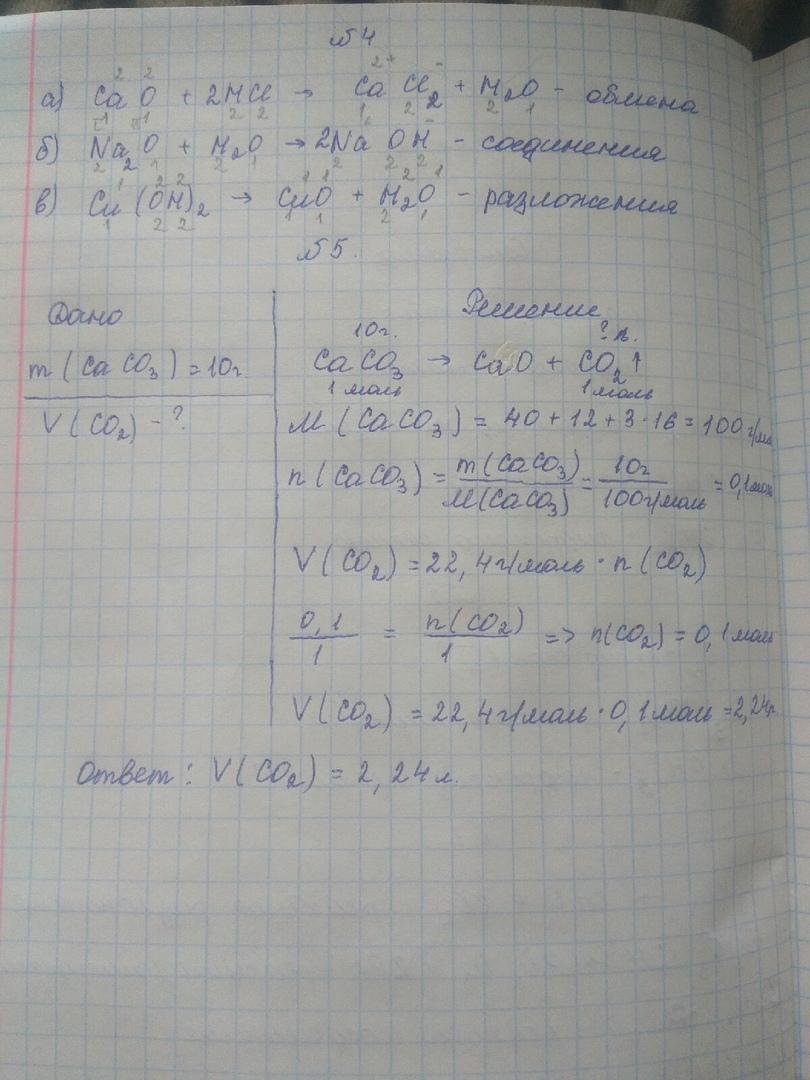 №4
а) CaO + 2HCl → CaCl₂ + H₂O - обмена
б) Na₂O + H₂O → 2NaOH - соединения
в) Cu(OH)₂ → CuO + H₂O - разложения
№5.
Дано
m(CaCO₃) = 10г
V(CO₂) - ?
Решение
10г. ? л.
CaCO₃ → CaO + CO₂↑
1 моль 1 моль
M(CaCO₃) = 40 + 12 + 3·16 = 100 г/мо
n(CaCO₃) = m(CaCO₃)/M(CaCO₃) = 10г/100г/моль = 0,1 моль
V(CO₂) = 22,4 г/моль · n(CO₂)
0,1/1 = n(CO₂)/1 => n(CO₂) = 0,1 моль
V(CO₂) = 22,4 г/моль · 0,1 моль = 2,24л
Ответ: V(CO₂) = 2,24 л.